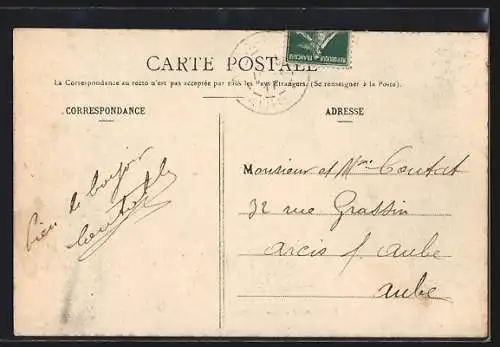 CARTE POSTALE
La Correspondance au recto n'est pas acceptée par tous les Pays Étrangers. (Se renseigner à la Poste).
CORRESPONDANCE
ADRESSE
REPUBLIQUE FRANÇAISE
Bien le bonjour
Monsieur et Mme Coutat
32 rue Grassin
Arcis s/ Aube
Aube